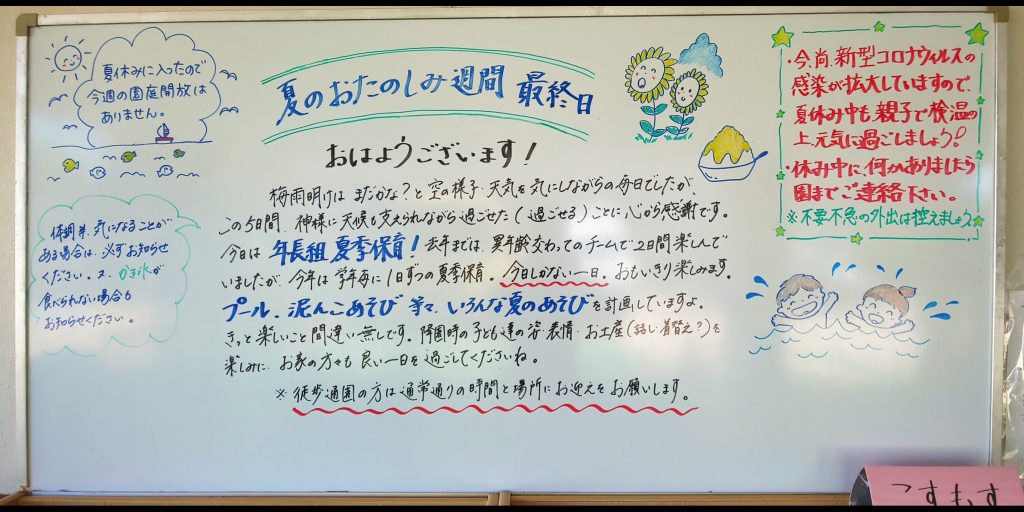 夏休みに入ったので
今週の園庭開放は
ありません。
夏のおたのしみ週間 最終日
おはようございます!
梅雨明けは まだかな?と空の様子・天気を気にしながらの毎日でしたが、
この5日間、神様に天候も支えられながら過ごせた(過ごせる)ことに心から感謝です。
今日は 年長組 夏季保育! 去年までは、異年齢交わってのチームで2日間楽しんで
いましたが、今年は学年毎に1日ずつの夏季保育。今日しかない一日。おもいきり楽しみます。
プール、泥んこあそび 等々、いろんな夏のあそびを計画していますよ。
きっと楽しいこと間違い無しです。降園時の子ども達の姿・表情・お土産(話し・着替え?)を
楽しみに、お家の方々も 良い一日を過ごしてくださいね。
※ 徒歩通園の方は通常通りの時間と場所にお迎えをお願いします。
体調等、気になることが
ある場合は、必ずお知らせ
ください。又、かき氷が
食べられない場合も
お知らせください。
・今、尚、新型コロナウィルスの
感染が拡大していますので、
夏休み中も、親子で検温の
上、元気に過ごしましょう!
・休み中に、何かありましたら
園までご連絡下さい。
※不要不急の外出は控えましょう
こすもす